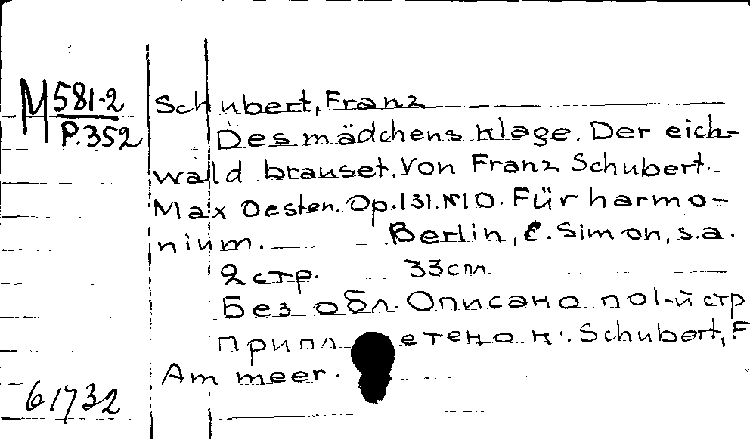 М 581-2
P.352
Schubert, Franz
Des mädchens klage. Der eich-
wald brauset. Von Franz Schubert.
Max Oesten. Op.131.№10. Für harmo-
nium. Berlin, C. Simon, s.a.
2 стр. 33 см.
Без обл. Описано по 1-й стр
Приплетено к: Schubert, F
Am meer.
61732